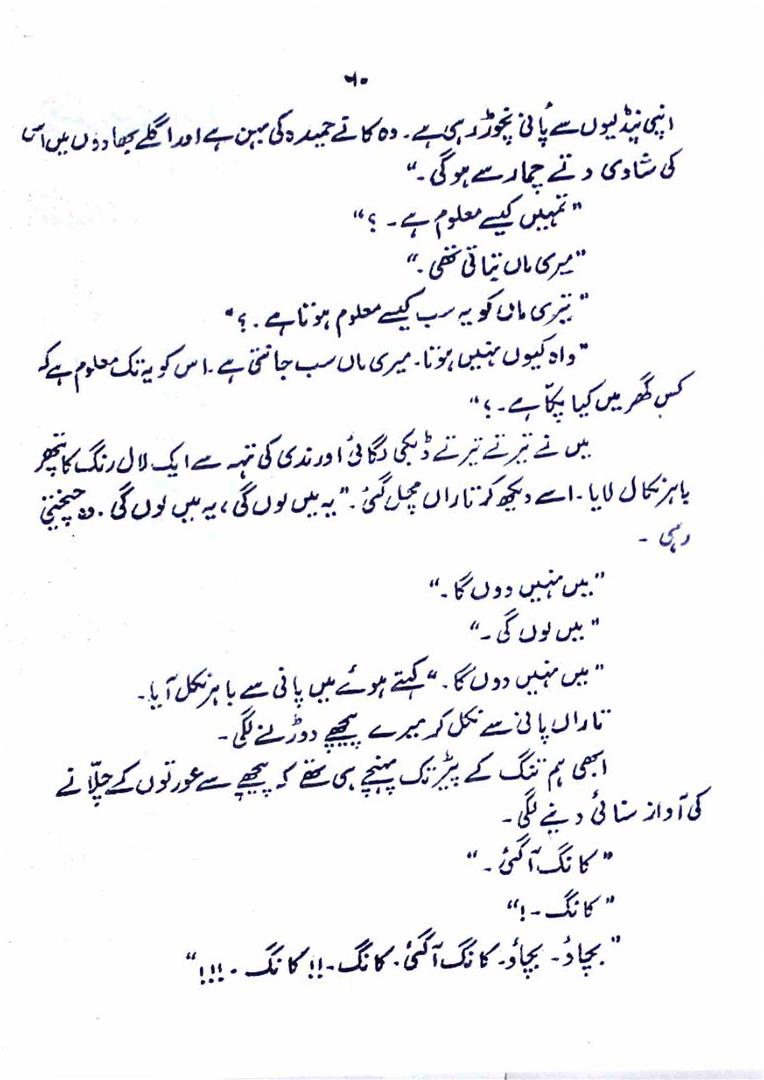 ۶۰
اپنی پنڈلیوں سے پانی نچوڑ رہی ہے۔ وہ کانے حمیدہ کی بہن ہے اور اگلے بھادوں میں اس
کی شادی دتے چمار سے ہوگی۔“
”تمہیں کیسے معلوم ہے۔ ؟“
”میری ماں بتاتی تھی۔“
”تیری ماں کو یہ سب کیسے معلوم ہوتا ہے۔ ؟“
”واہ کیوں نہیں ہوتا۔ میری ماں سب جانتی ہے۔ اس کو یہ تک معلوم ہے کہ
کس گھر میں کیا پکّا ہے۔ ؟“
میں نے تیرتے تیرتے ڈبکی لگائی اور ندی کی تہہ سے ایک لال رنگ کا پتھر
باہر نکال لایا۔ اسے دیکھ کر تاراں مچل گئی۔ ”یہ میں لوں گی، یہ میں لوں گی۔ وہ چیختی
رہی ۔
”میں نہیں دوں گا۔“
”میں لوں گی۔“
”میں نہیں دوں گا۔“ کہتے ہوئے میں پانی سے باہر نکل آیا۔
تاراں پانی سے نکل کر میرے پیچھے دوڑنے لگی۔
ابھی ہم تنگ کے پیڑ تک پہنچے ہی تھے کہ پیچھے سے عورتوں کے چلّانے
کی آواز سنائی دینے لگی۔
”کانگ آگئی۔“
”کانگ۔!“
”بچاؤ۔ بچاؤ۔ کانگ آگئی۔ کانگ۔!! کانگ۔!!!“